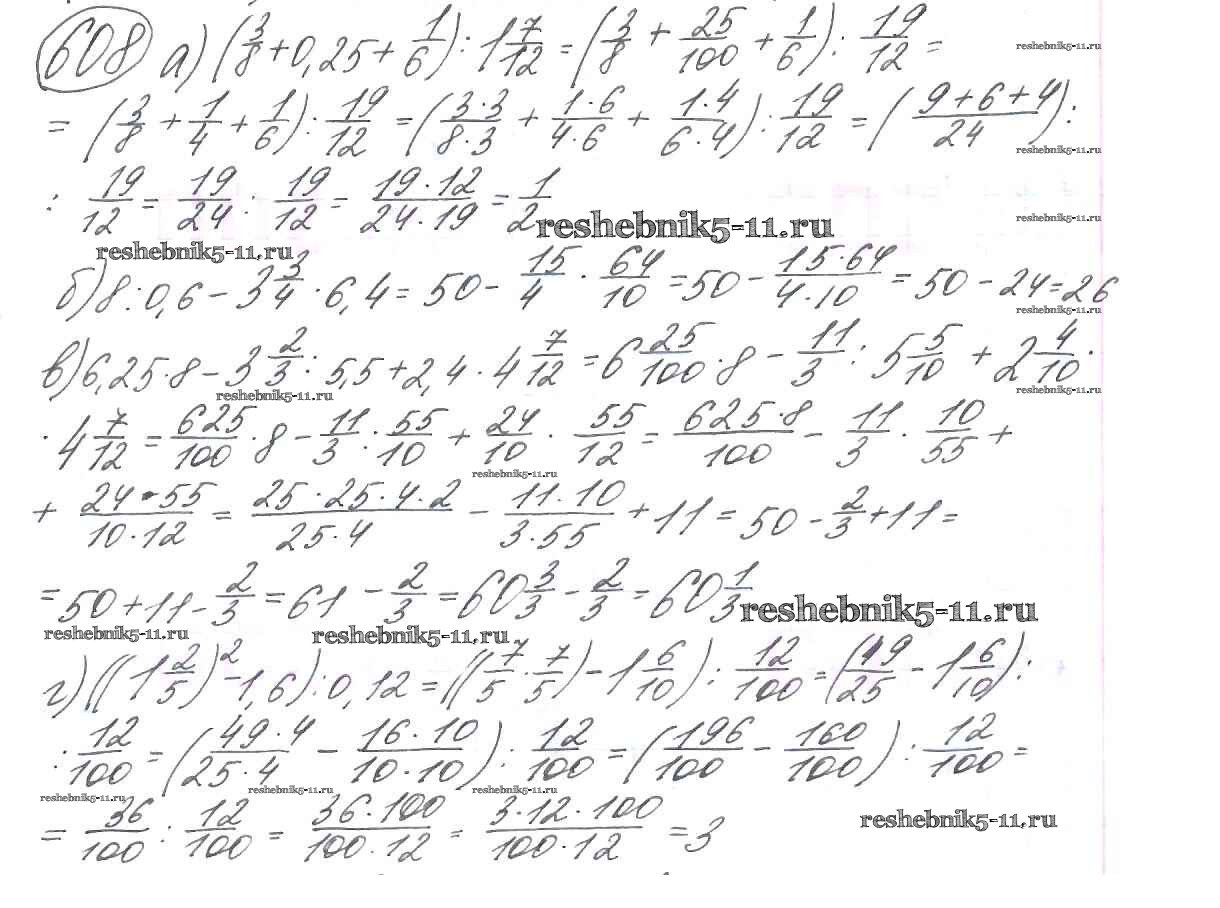 608 а) (3/8 + 0,25 + 1/6) : 1 7/12 = (3/8 + 25/100 + 1/6) : 19/12 =
reshebnik5-11.ru
= (3/8 + 1/4 + 1/6) : 19/12 = (3·3/8·3 + 1·6/4·6 + 1·4/6·4) : 19/12 = (9+6+4/24) :
reshebnik5-11.ru
: 19/12 = 19/24 : 19/12 = 19·12/24·19 = 1/2
reshebnik5-11.ru
reshebnik5-11.ru
reshebnik5-11.ru
б) 8 : 0,6 - 3 3/4 · 6,4 = 50 - 15/4 · 64/10 = 50 - 15·64/4·10 = 50 - 24 = 26
reshebnik5-11.ru
в) 6,25·8 - 3 2/3 : 5,5 + 2,4 · 4 7/12 = 6 25/100 · 8 - 11/3 : 5 5/10 + 2 4/10 ·
reshebnik5-11.ru
reshebnik5-11.ru
· 4 7/12 = 625/100 · 8 - 11/3 : 55/10 + 24/10 · 55/12 = 625·8/100 - 11/3 · 10/55 +
reshebnik5-11.ru
+ 24·55/10·12 = 25·25·4·2/25·4 - 11·10/3·55 + 11 = 50 - 2/3 + 11 =
= 50 + 11 - 2/3 = 61 - 2/3 = 60 3/3 - 2/3 = 60 1/3
reshebnik5-11.ru
reshebnik5-11.ru
reshebnik5-11.ru
г) ((1 2/5)² - 1,6) : 0,12 = ((7/5 · 7/5) - 1 6/10) : 12/100 = (49/25 - 1 6/10) :
: 12/100 = (49·4/25·4 - 16·10/10·10) : 12/100 = (196/100 - 160/100) : 12/100 =
reshebnik5-11.ru
reshebnik5-11.ru
reshebnik5-11.ru
= 36/100 : 12/100 = 36·100/100·12 = 3·12·100/100·12 = 3
reshebnik5-11.ru